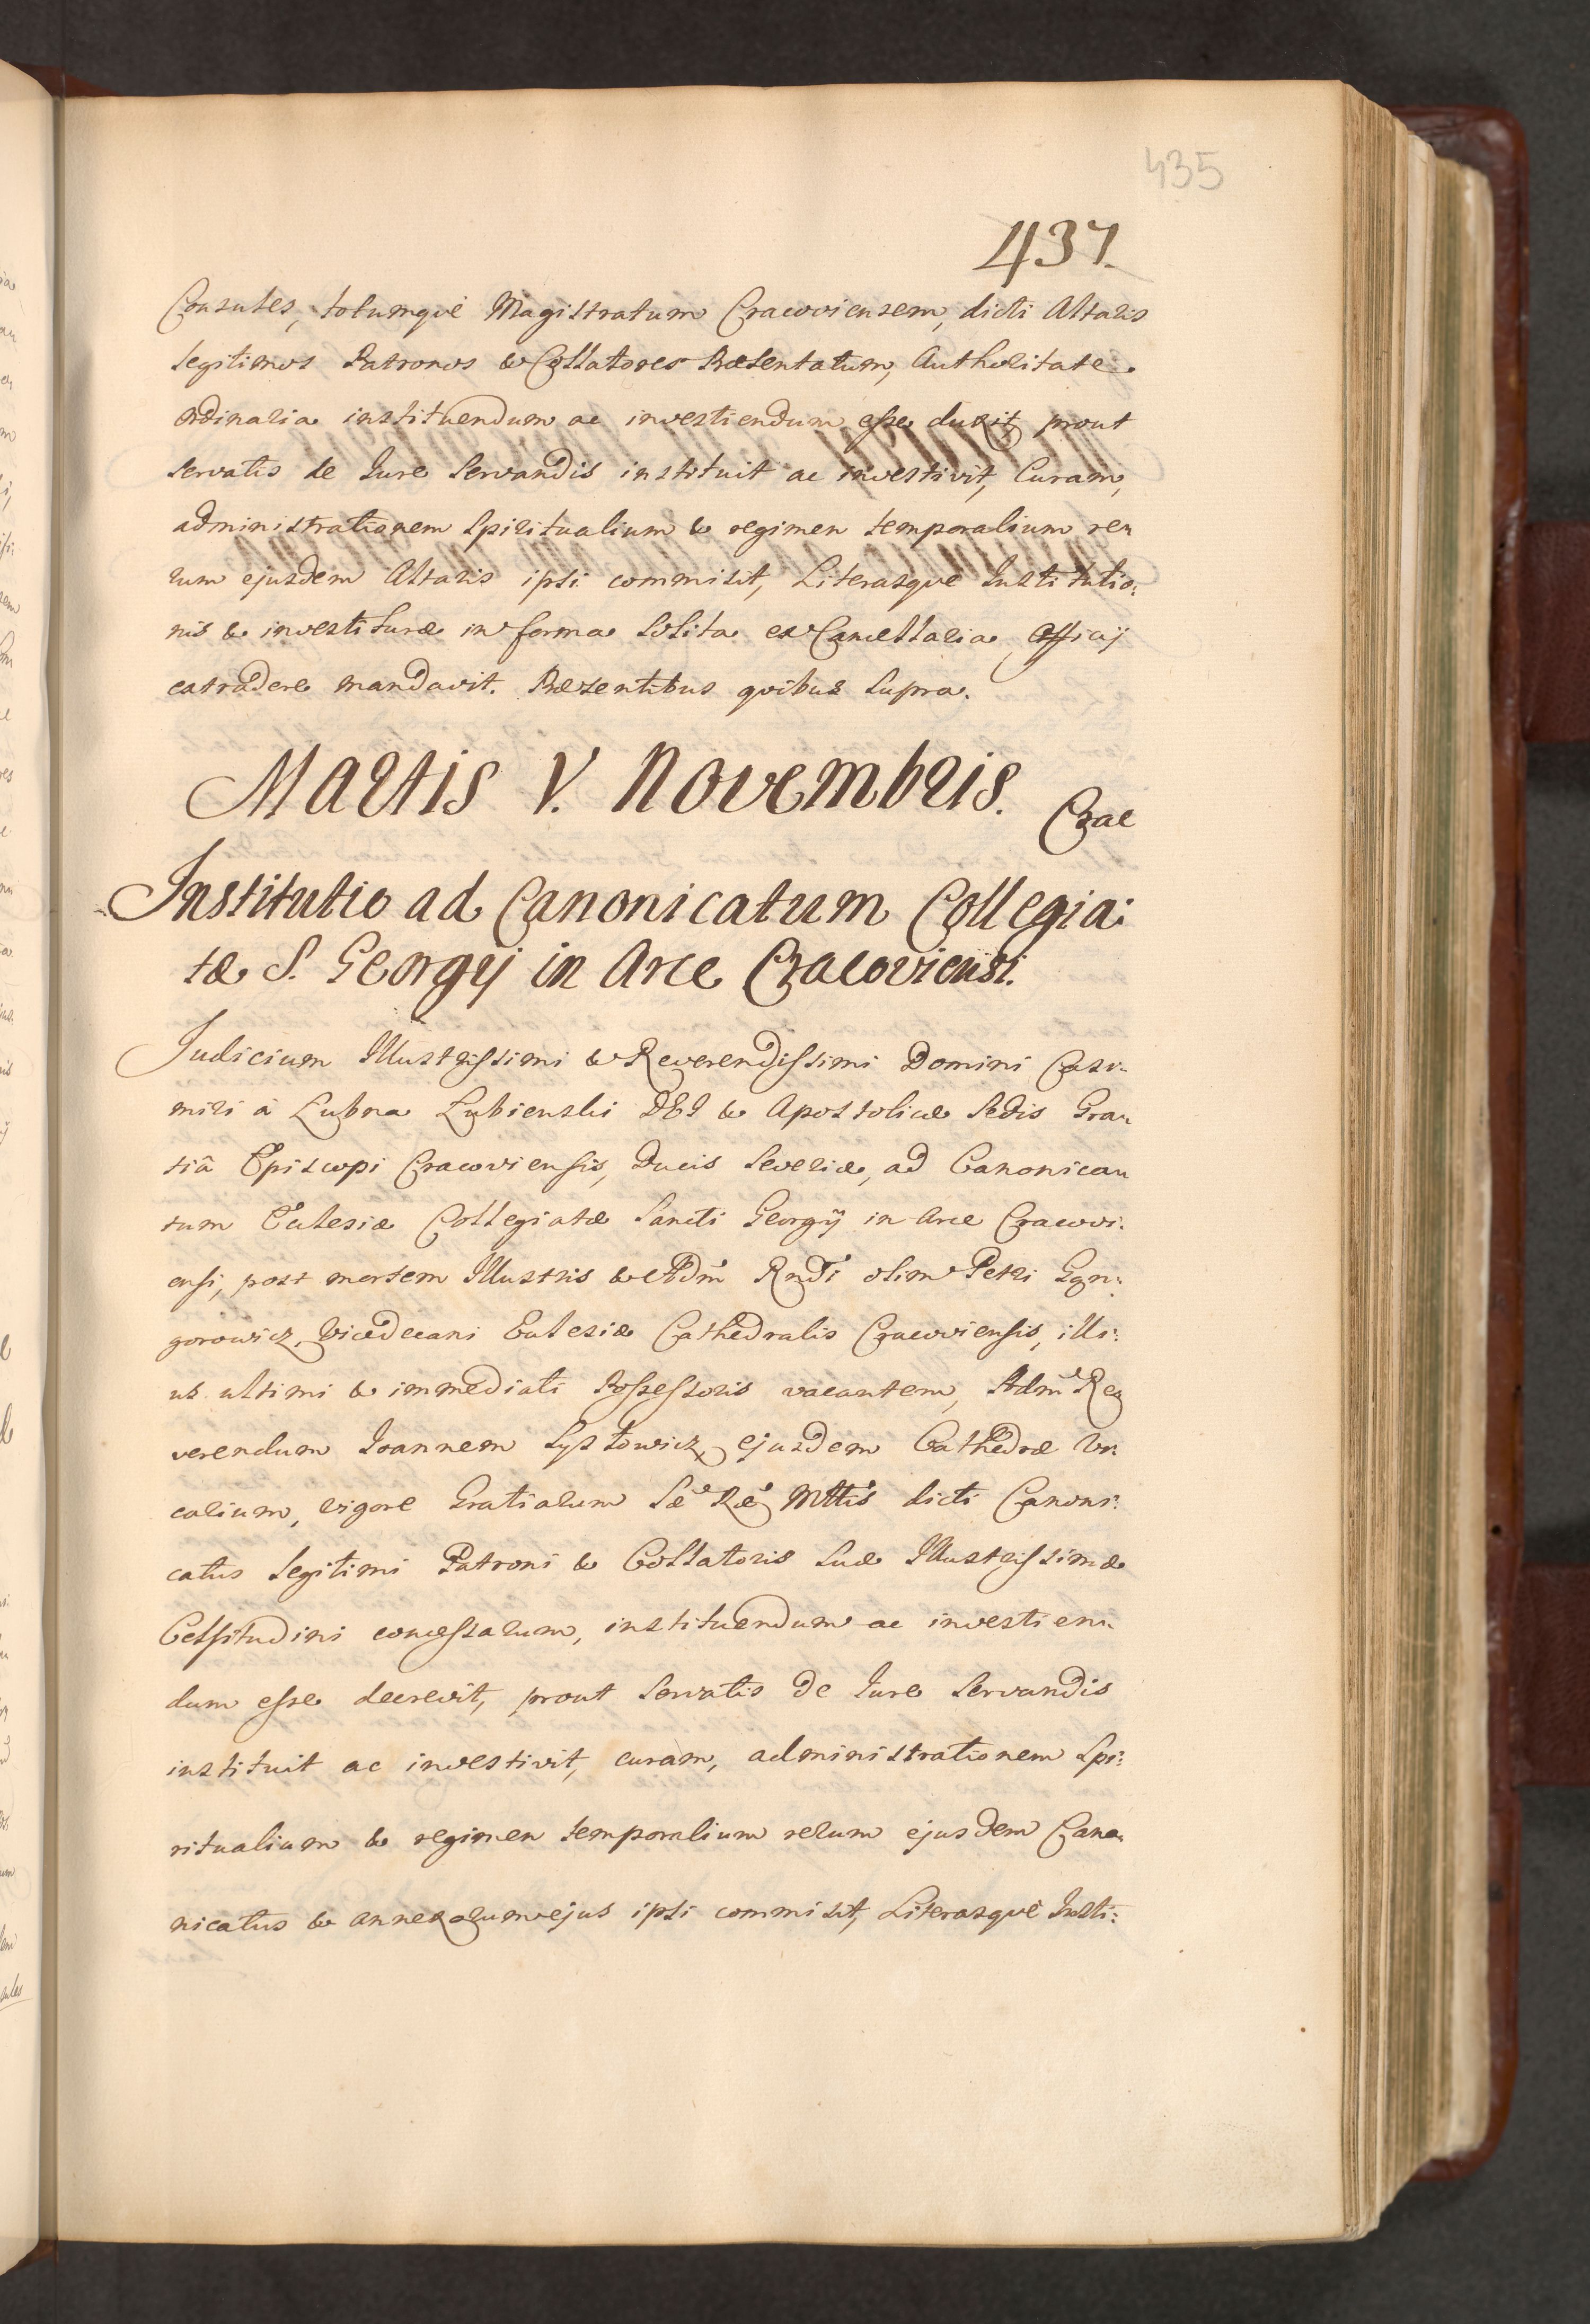 435
437.
Consules, totumqve Magistratum Cracoviensem, dicti Altaris
legitimos Patronos & Collatores Præsentatum, Authoritate
ordinaria instituendum ac investiendum esse duxit, prout
servatis de Jure servandis instituit ac investivit, Curam,
administrationem Spiritualium & regimen temporalium re„
rum ejusdem Altaris ipsi commisit, Literasqve Institutio:
nis & investituræ in forma solita ex Cancellaria Officij
extradere mandavit. Præsentibus qvibus supra.
Martis V. Novembris. Crac
Institutio ad Canonicatum Collegia:
tæ S. Georgij in Arce Cracoviensi.
Judicium Illustrissimi & Reverendissimi Domini Casi„
miri à Łubna Łubienski DEI & Apostolicæ Sedis Gra„
tiâ Episcopi Cracoviensis, Ducis Severiæ, ad Canonica„
tum Ecclesiæ Collegiatæ Sancti Georgij in Arce Cracovi„
ensi, post mortem Illustris & Adm Rndi olim Petri Gqn:
gorowicz Vicedecani Ecclesiæ Cathedralis Cracoviensis, illi:
us ultimi & immediati Possessoris vacantem, Adm Re„
verendum Joannem ejusdem Cathedræ Vi„
carium, vigore Gratiarum Sæ Ræ Mttis dicti Canoni:
catus legitimi Patroni & Collatoris suæ Illustrissimæ
Celsitudini concessarum, instituendum ac investien„
dum esse decrevit, prout servatis de Jure servandis
instituit ac investivit, curam, administrationem Spi:
ritualium & regimen temporalium rerum ejusdem Cano„
nicatus & annexorum ejus ipsi commisit, Literasqve Insti: